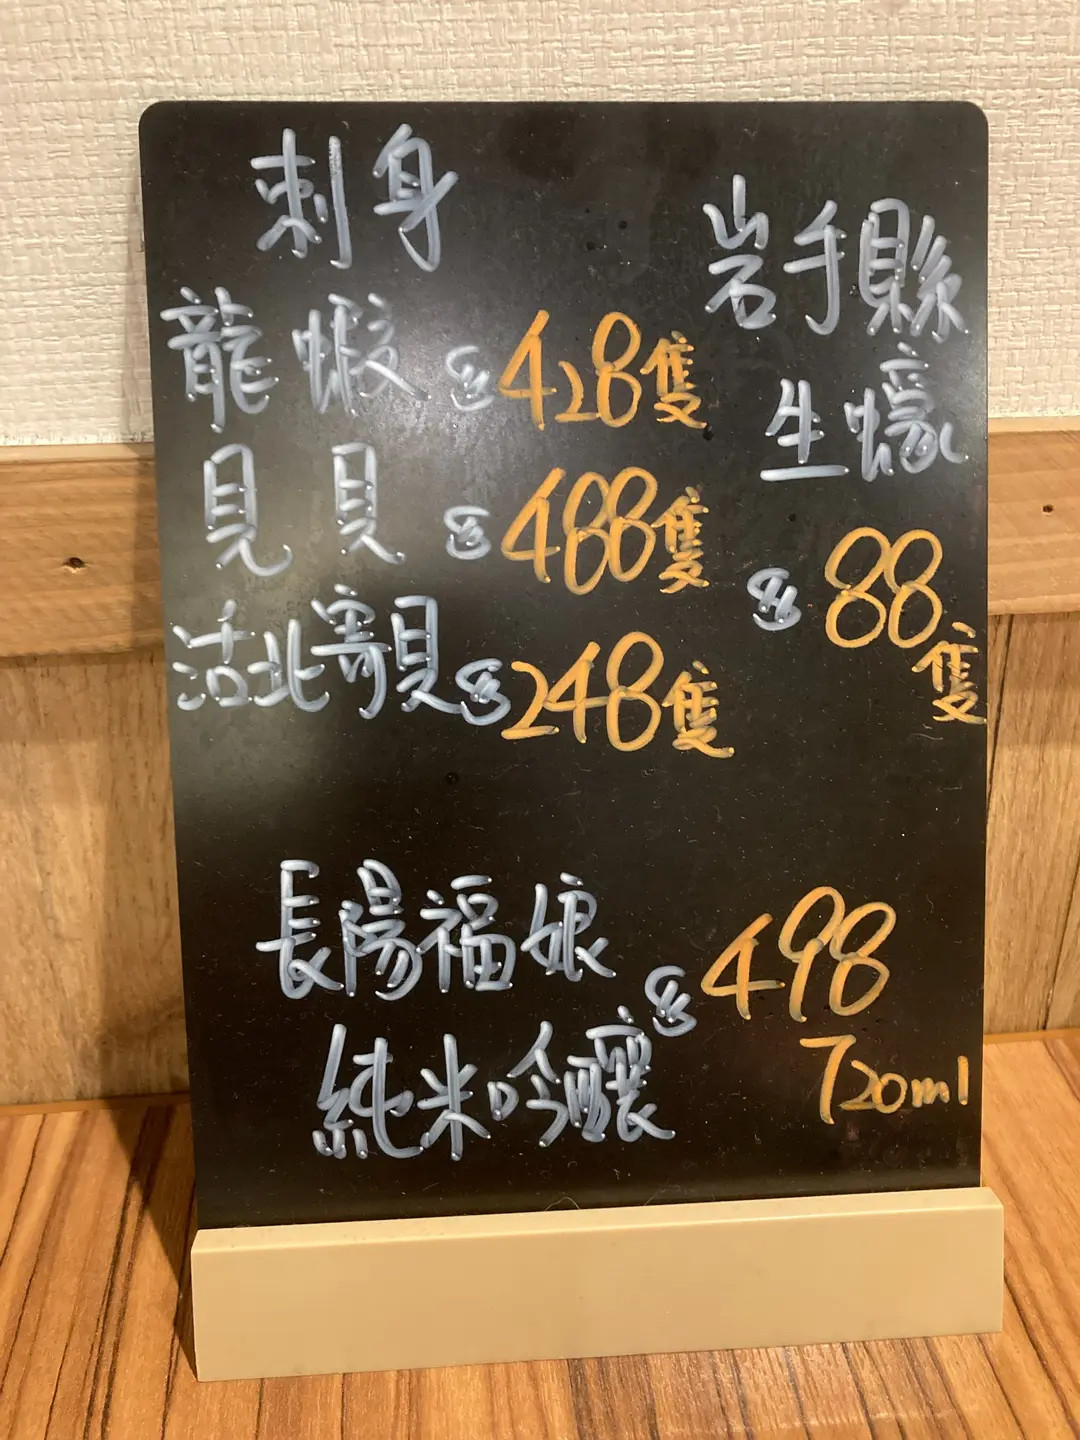 刺身
龍蝦 $428隻
見貝 $488隻
活北寄貝 $248隻
岩手縣
生蠔
$88
隻
長陽福娘
純米吟釀 $498
720ml